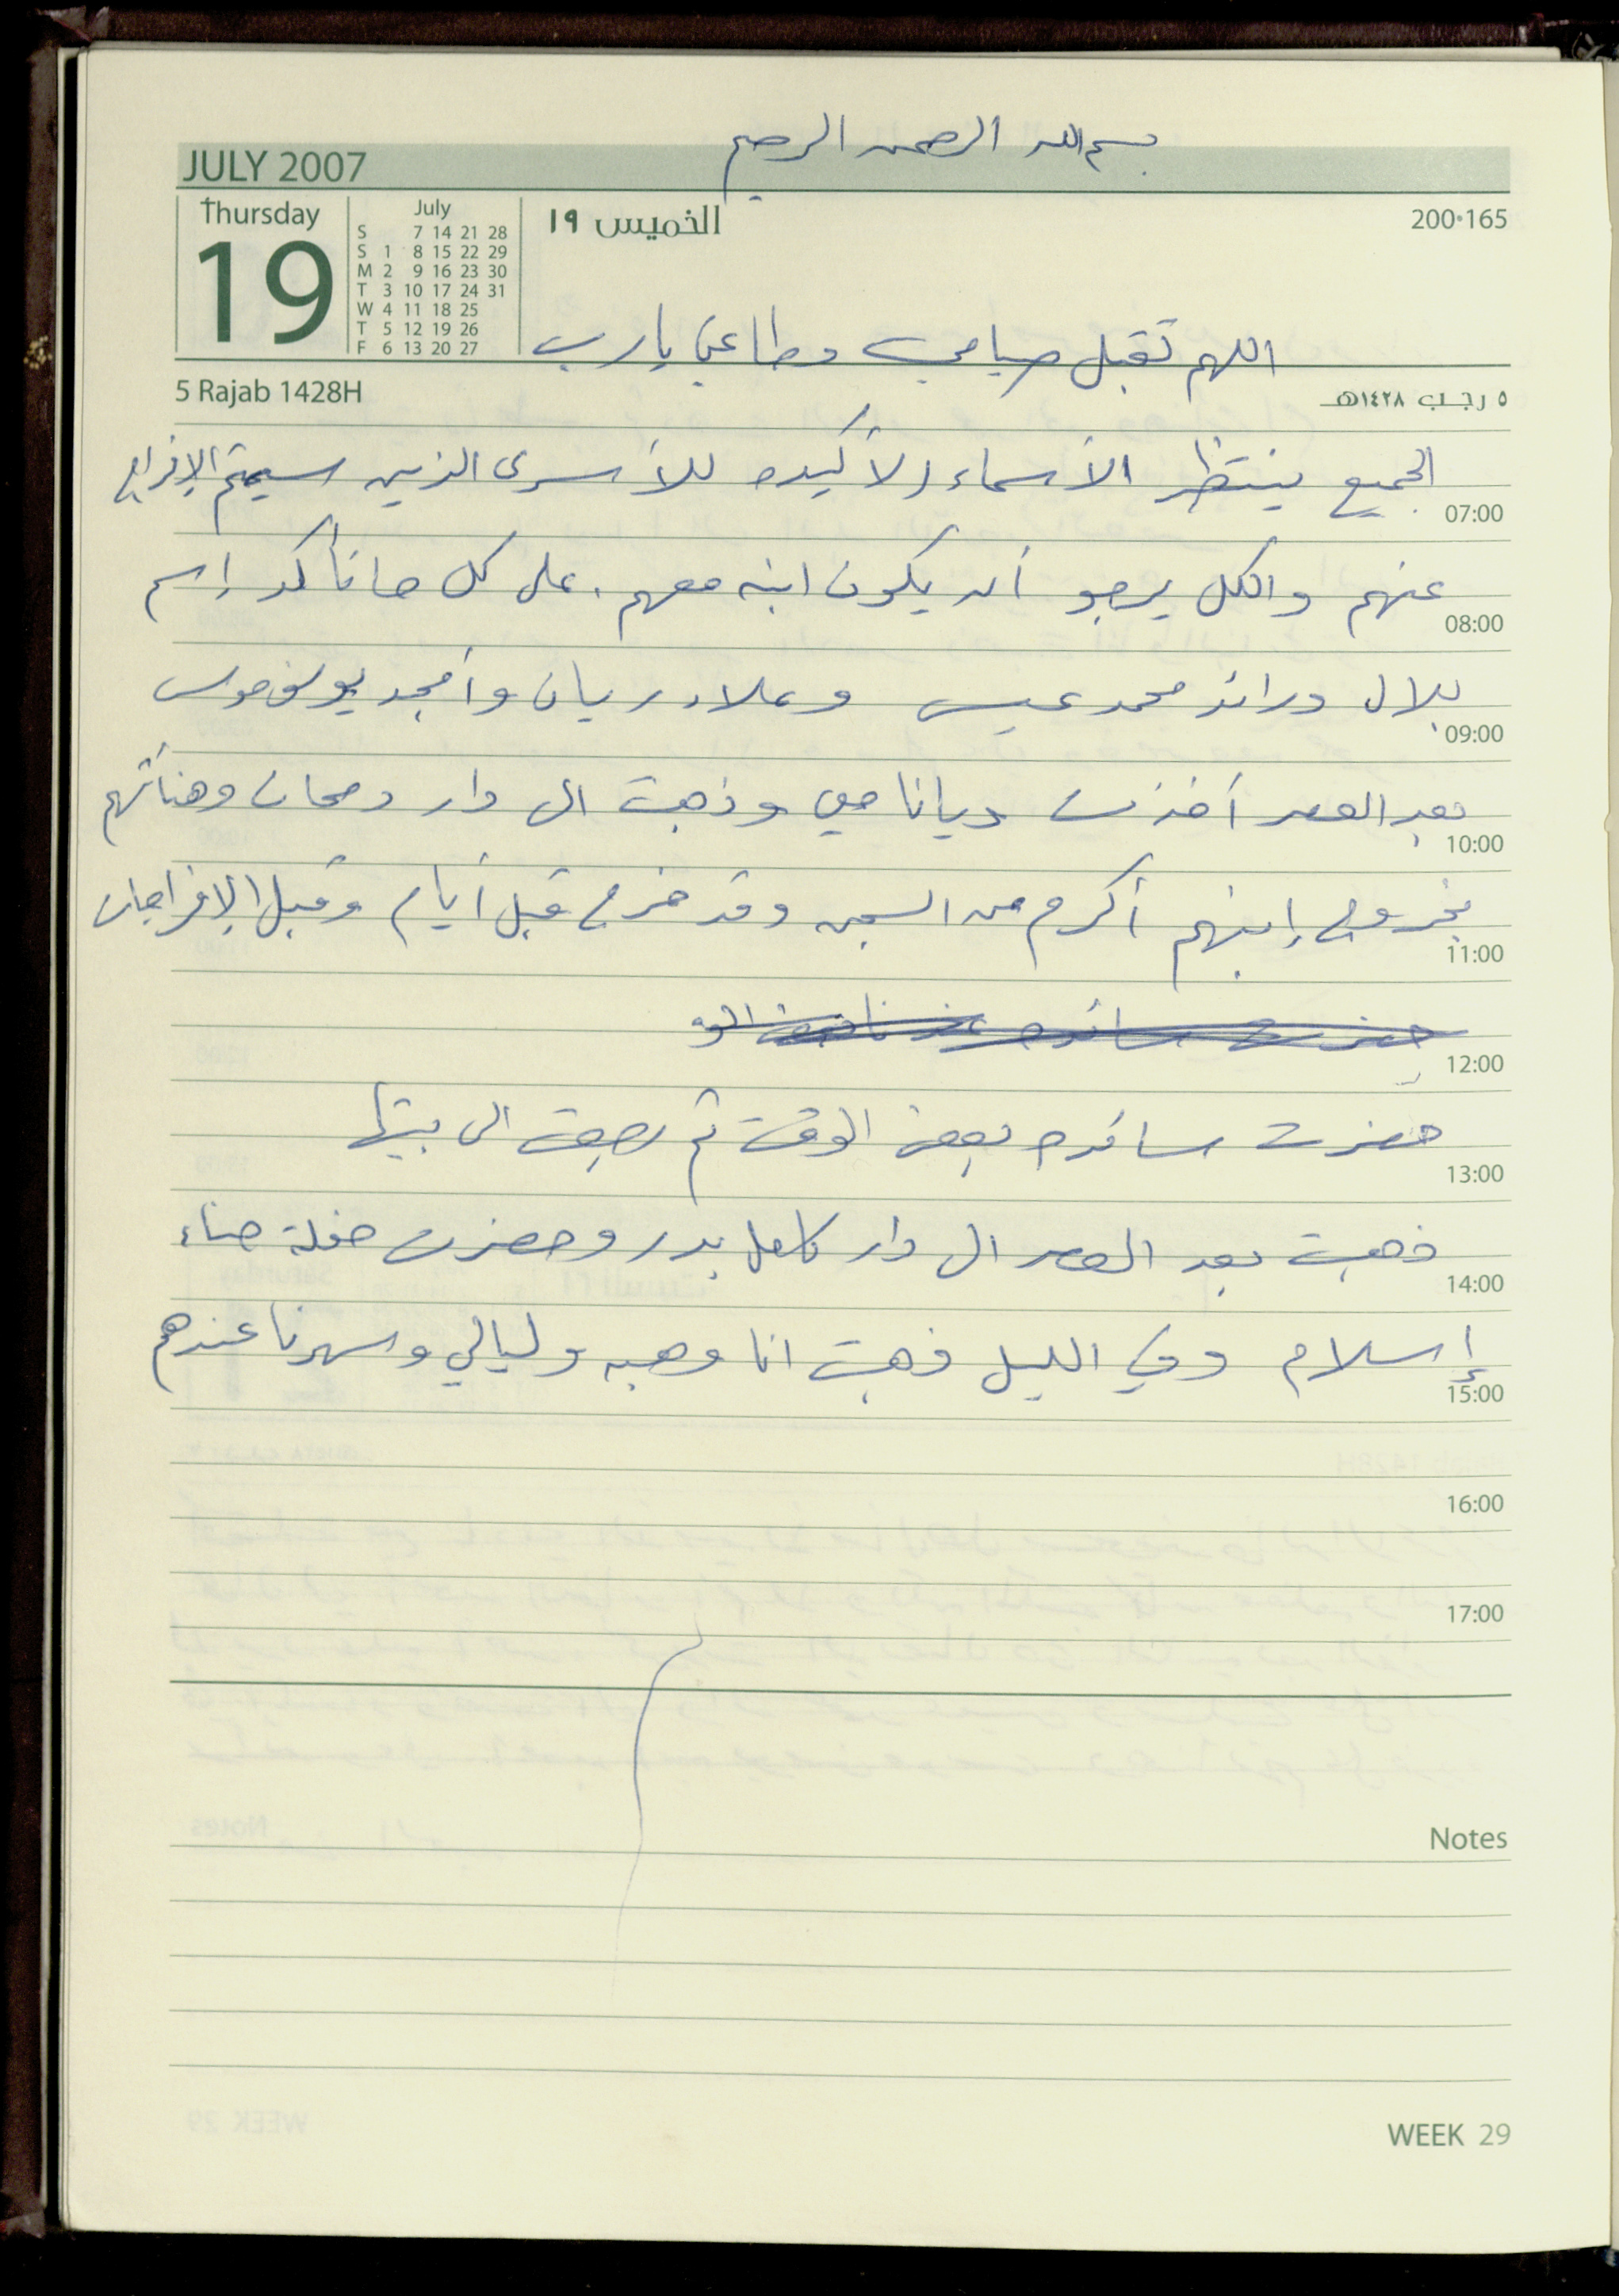 بسم الله الرحمن الرحيم
JULY 2007
Thursday
19
July
S 7 14 21 28
S 1 8 15 22 29
M 2 9 16 23 30
T 3 10 17 24 31
W 4 11 18 25
T 5 12 19 26
F 6 13 20 27
الخميس ١٩
200·165
اللهم تقبل صيامي وطاعتي يا رب
5 Rajab 1428H
٥ رجب ١٤٢٨هـ
الجميع ينتظر الأسماء الأكيده للأسرى الذين سيتم الإفراج
07:00
عنهم والكل يرجو أن يكون ابنه معهم. على كل حال تأكد إسم
08:00
بلال ورائد محمد عيسى وعلاء ريان وأمجد يوسف موسى
09:00
بعد العصر أخذت ديانا معي وذهبت الى دار وهنأتهم
10:00
بخروج إبنهم أكرم من السجن وقد خرج قبل أيام وقبل الإفراجات
11:00
12:00
حضرت سائده بعض الوقت ثم رجعت الى بيتها
13:00
ذهبت بعد العصر الى دار كامل بدر وحضرت حفلة حناء
14:00
إسلام وفي الليل ذهبت انا وهبه وليالي وسهرنا عندهم
15:00
16:00
17:00
Notes
WEEK 29